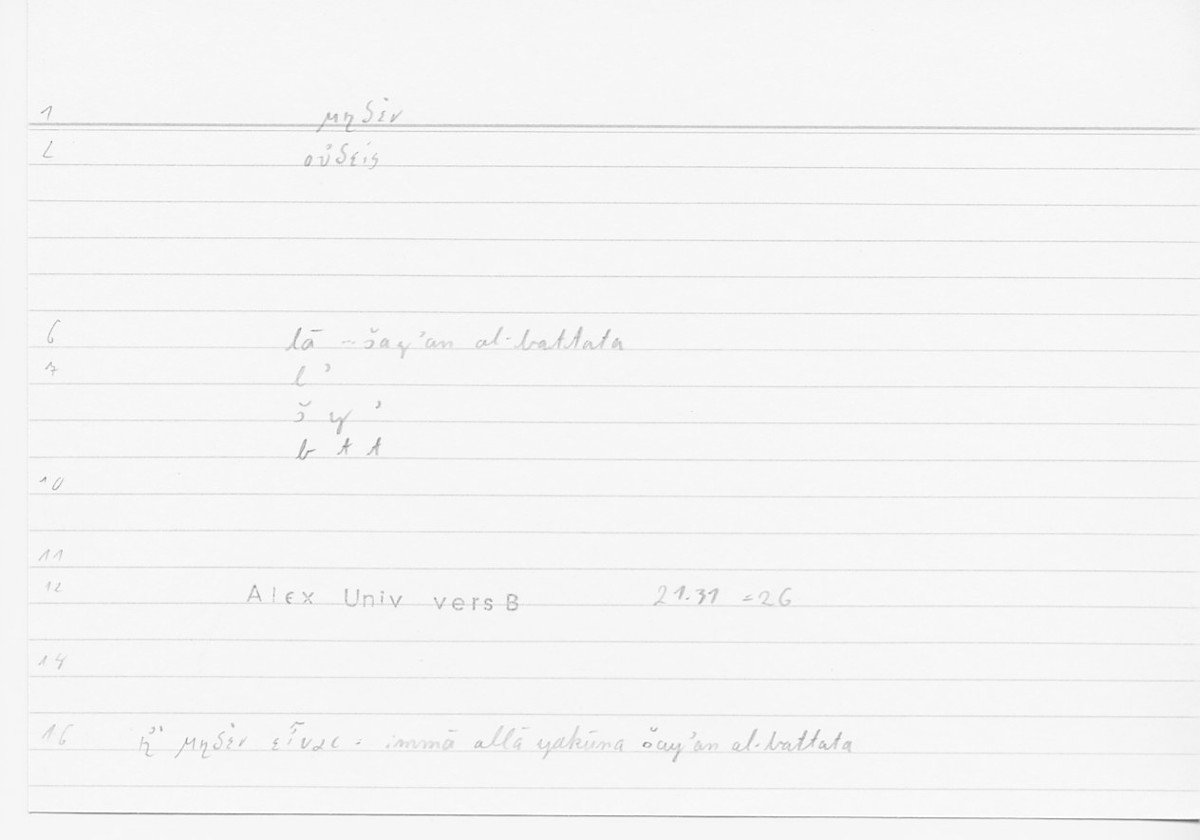 1 μηδὲν
2 οὐδείς
6 lā -- šay'an al-battata
7 l ʾ
š y ʾ
b t t
10
11
12 Alex Univ vers B 21.31 = 26
14
16 ἢ μηδὲν εἶναι = immā allā yakūna šay'an al-battata